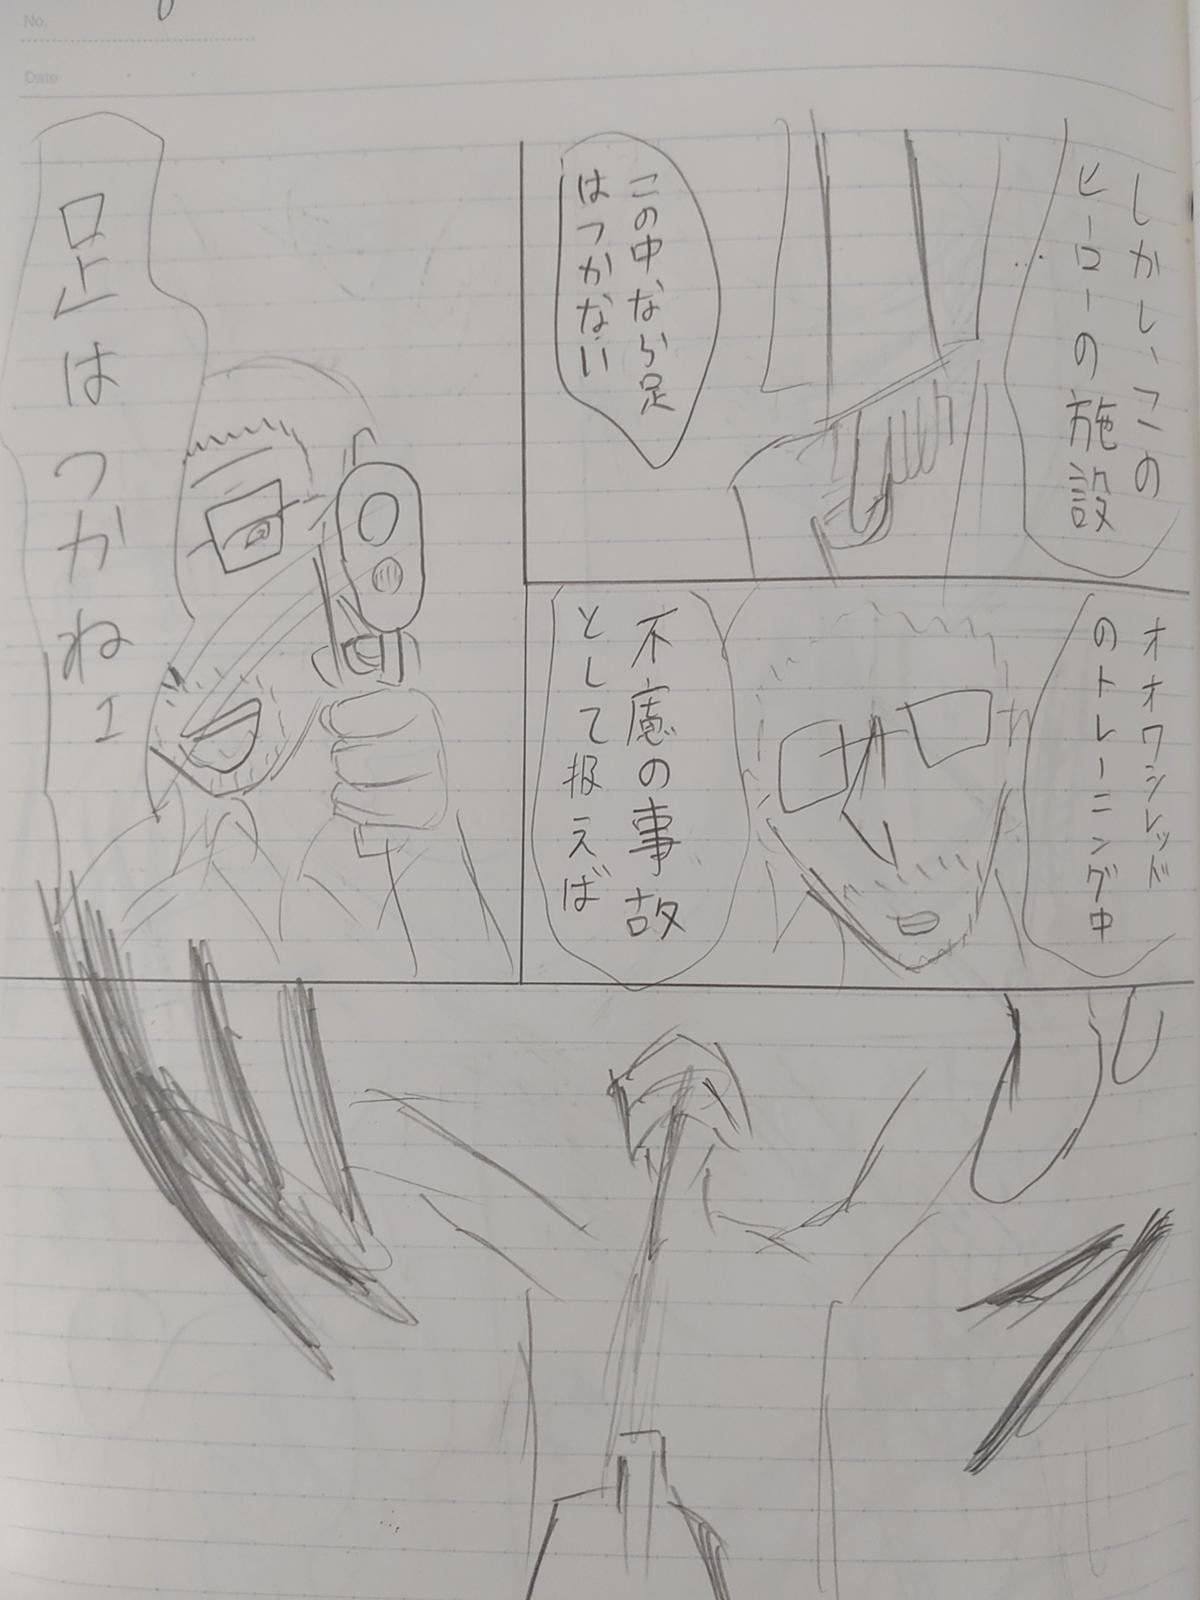 No.
Date
しかし、この
ヒーローの施設
この中なら足
はつかない
オオワシレッド
のトレーニング中
不慮の事故
として扱えば
足はつかねェ